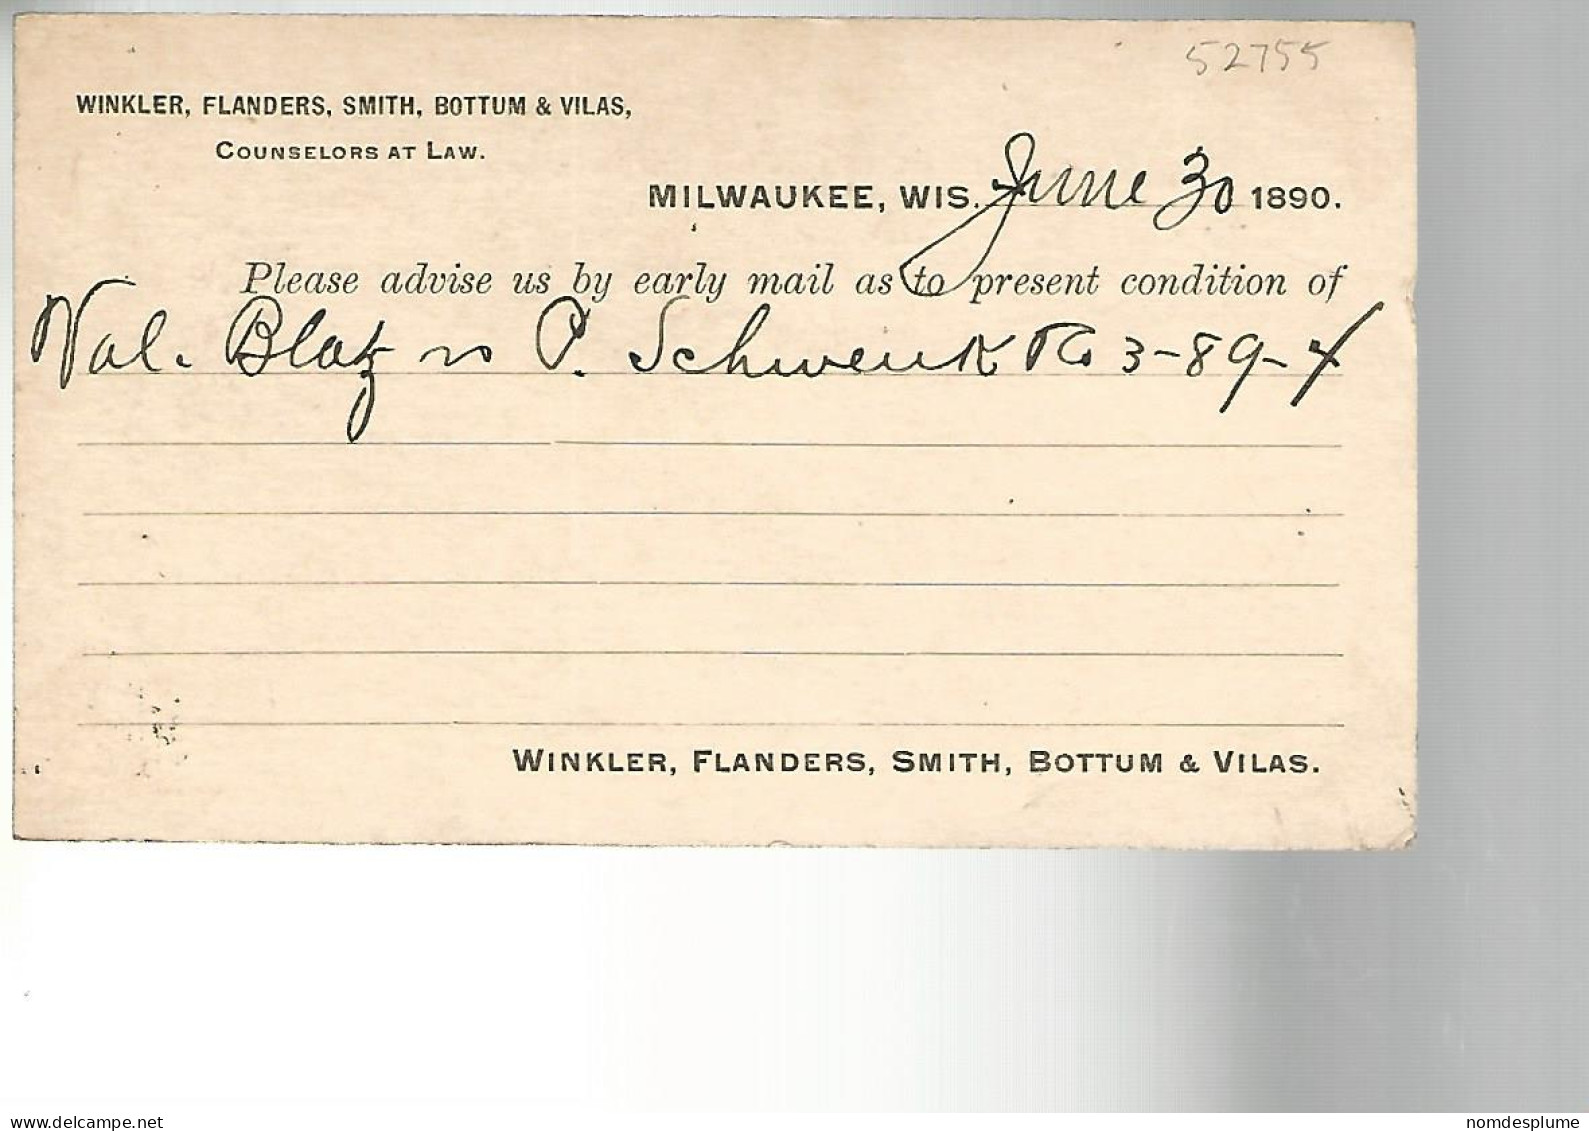 52755
WINKLER, FLANDERS, SMITH, BOTTUM & VILAS,
COUNSELORS AT LAW.
MILWAUKEE, WIS. June 30 1890.
Please advise us by early mail as to present condition of
Val. Blatz vs P. Schwenk 3-89-4
WINKLER, FLANDERS, SMITH, BOTTUM & VILAS.
www.delcampe.net
nomdesplume